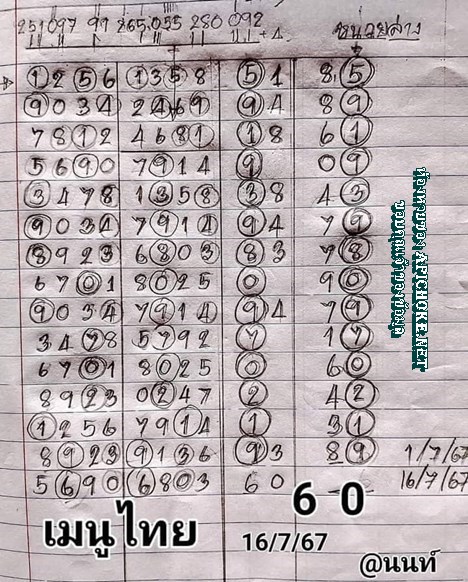 251097 99 265.055 280 092
หน่วยล่าง
1256 1358 51 85
9034 2469 94 89
7812 4681 18 61
5690 7914 9 09
3478 1358 38 43
9034 7914 94 79
8923 6803 83 78
6701 8025 0 90
9034 7914 94 79
3478 5792 7 17
6701 8025 0 60
8923 0247 2 42
1256 7914 1 31
8923 9136 93 89 1/7/67
5690 6803 60 16/7/67
6 0
เมนูไทย 16/7/67
@นนท์
APICHOKE.NET